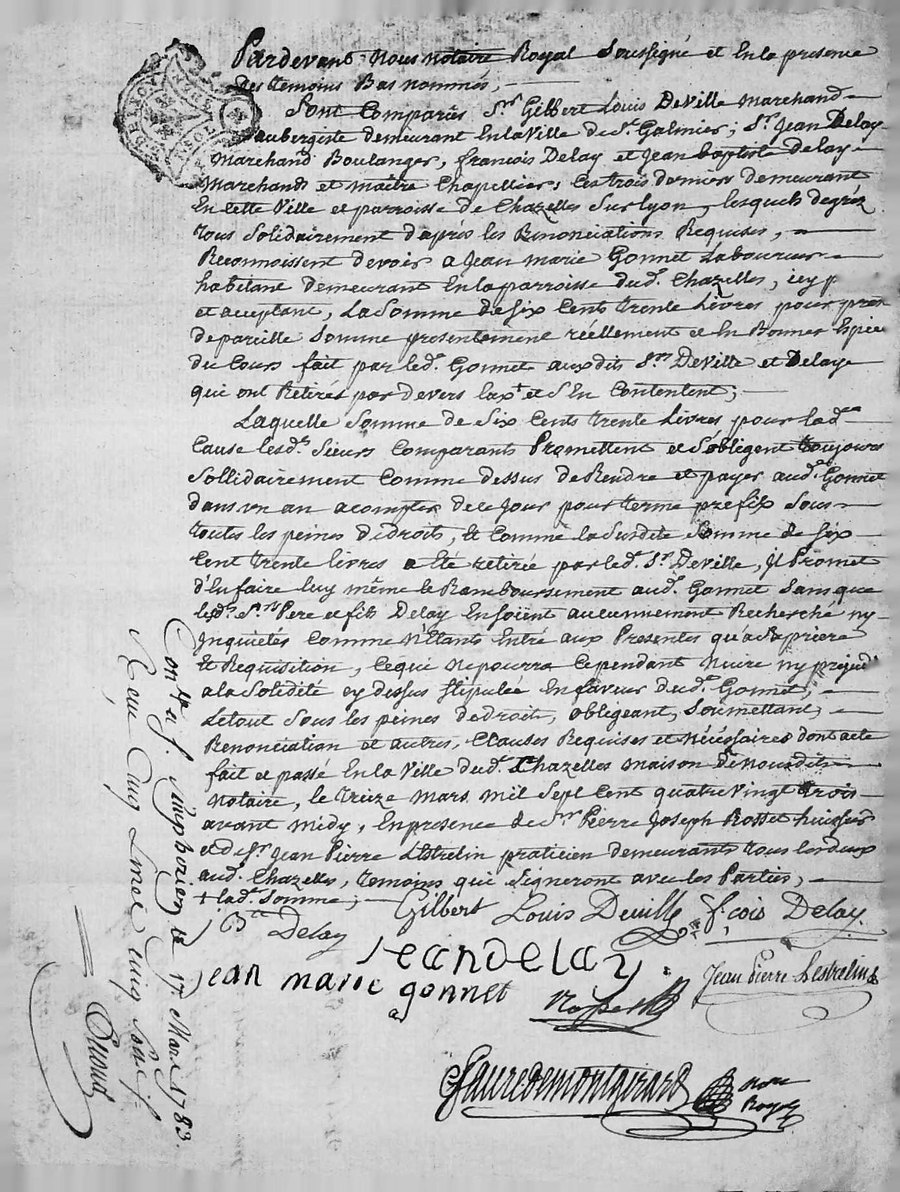 Pardevant Nous notaire Royal Soussigné et En la presence
des temoins Bas nommés, —
Sont Comparûs Srs Gilbert Louis Deville Marchand
aubergiste demeurant En la Ville de St. Galmier; Sr. Jean Delay
Marchand Boulanger, françois Delay et Jean baptiste Delay
Marchands et maître Chapellier, les trois derniers demeurant
En cette Ville et parroisse de Chazelles sur lyon, lesquels de grez
tous solidairement d'apres les Rénonciations Requises, —
Reconnoissent devoir a Jean marie Gonnet Laboureur
habitant demeurant En la parroisse dud. Chazelles, icy p
et aceptant, La Somme de six Cents trente Livres pour prest
de pareille Somme presentement réellement et En Bonnes Espèces
du Cours fait par led. Gonnet auxdits Srs. Deville et Delay
qui ont Retirés par devers Eux + et s'En Contentent; —
Laquelle Somme de Six Cents trente Livres pour lad.
Cause lesds. Sieurs Comparants Promettent et s'obligent toujours
Sollidairement Comme dessus de Rendre et payer aud. Gonnet
dans un an a compter de ce Jour pour terme prefix Sous
toutes les peines de droits, Et Comme la Susdite Somme de Six
Cent trente livres a Eté retirée par led. Sr. Deville, Il Promet
d'En faire luy même le Remboursement aud. Gonnet Sans que
lesds. Srs. Pere et fils Delay En soient aucunnement Recherché ny
Inquietés Comme N'Etants Entré aux Presentes qu'a sa priere
Et Requisition, Ce qui Ne pourra Cependant Nuire ny prejudi
a la Solidité cy dessus Stipulée En faveur dud. Gonnet,
Le tout Sous les peines de droit, obligeant, Soumettant,
Renonciation et autres, Clauses Requises et Nécéssaires dont acte
fait et passé En la Ville dud. Chazelles maison de Nousdit
Notaire, le treize mars mil sept Cent quatre vingt trois
avant midy, En presence de Sr. Pierre Joseph Rosset huissier
et de Sr. Jean Pierre Lestrelin praticien demeurants tous les deux
aud. Chazelles, temoins qui Signeront avec les Parties, —
+ lad. Somme;
Gilbert Louis Deville fcois Delay
J Bte Delay
Jean Delay
Jean Pierre Lestrelin
Jean marie gonnet
Rosset
Faure de montgirard
Nore
Royal
Con. a St. Simphorien le 17 Mars 1783.
Reçu Cinq Livres Cinq Sols